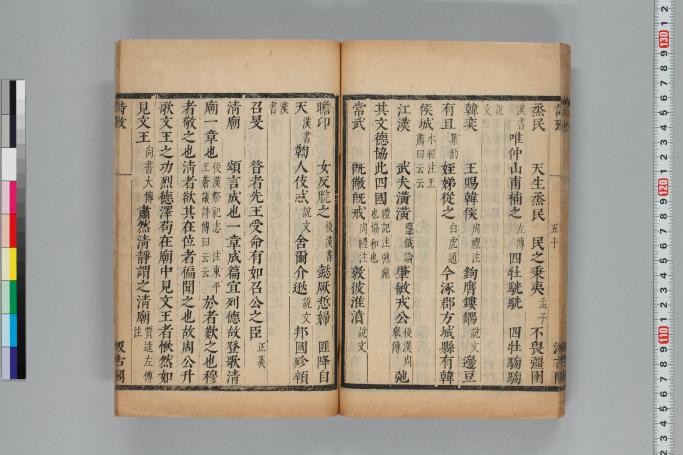 烝民 天生烝民 民之秉夷孟子 不畏彊圉
漢書 唯仲山甫補之左傳 四牡騤騤 四牡騤騤
說文
韓奕 王賜韓侯周禮注 鉤膺鏤鍚說文 籩豆
有且 姪娣從之白虎通 今涿郡方城縣有韓
侯城水經注王肅曰云云
江漢 武夫潢潢鹽鐵論 肇敏戎公後漢 弛
其文德協此四國禮記注弛施也協和也
常武 既儆既戒周禮注 敦彼淮濆說文
瞻卬 女反 後漢書 懿厥悊婦 匪降自
天漢書 鞫人伎忒說文 舍爾介逖說文 邦國殄
漢書
召旻 昝者先王受命有如召公之臣正義
清廟 頌言成也一章成篇宜列德故登歌清
廟一章也後漢祭祀志注東平王蒼議詩傳曰云云 於者歎之也穆
者敬之也清者欲其在位者徧聞之也故周公升
歌文王之功烈德澤苟在廟中見文王者愀然如
見文王尚書大傳 肅然清靜謂之清廟賈逵左傳注
詩攷
汲古閣
五十
130
120
110